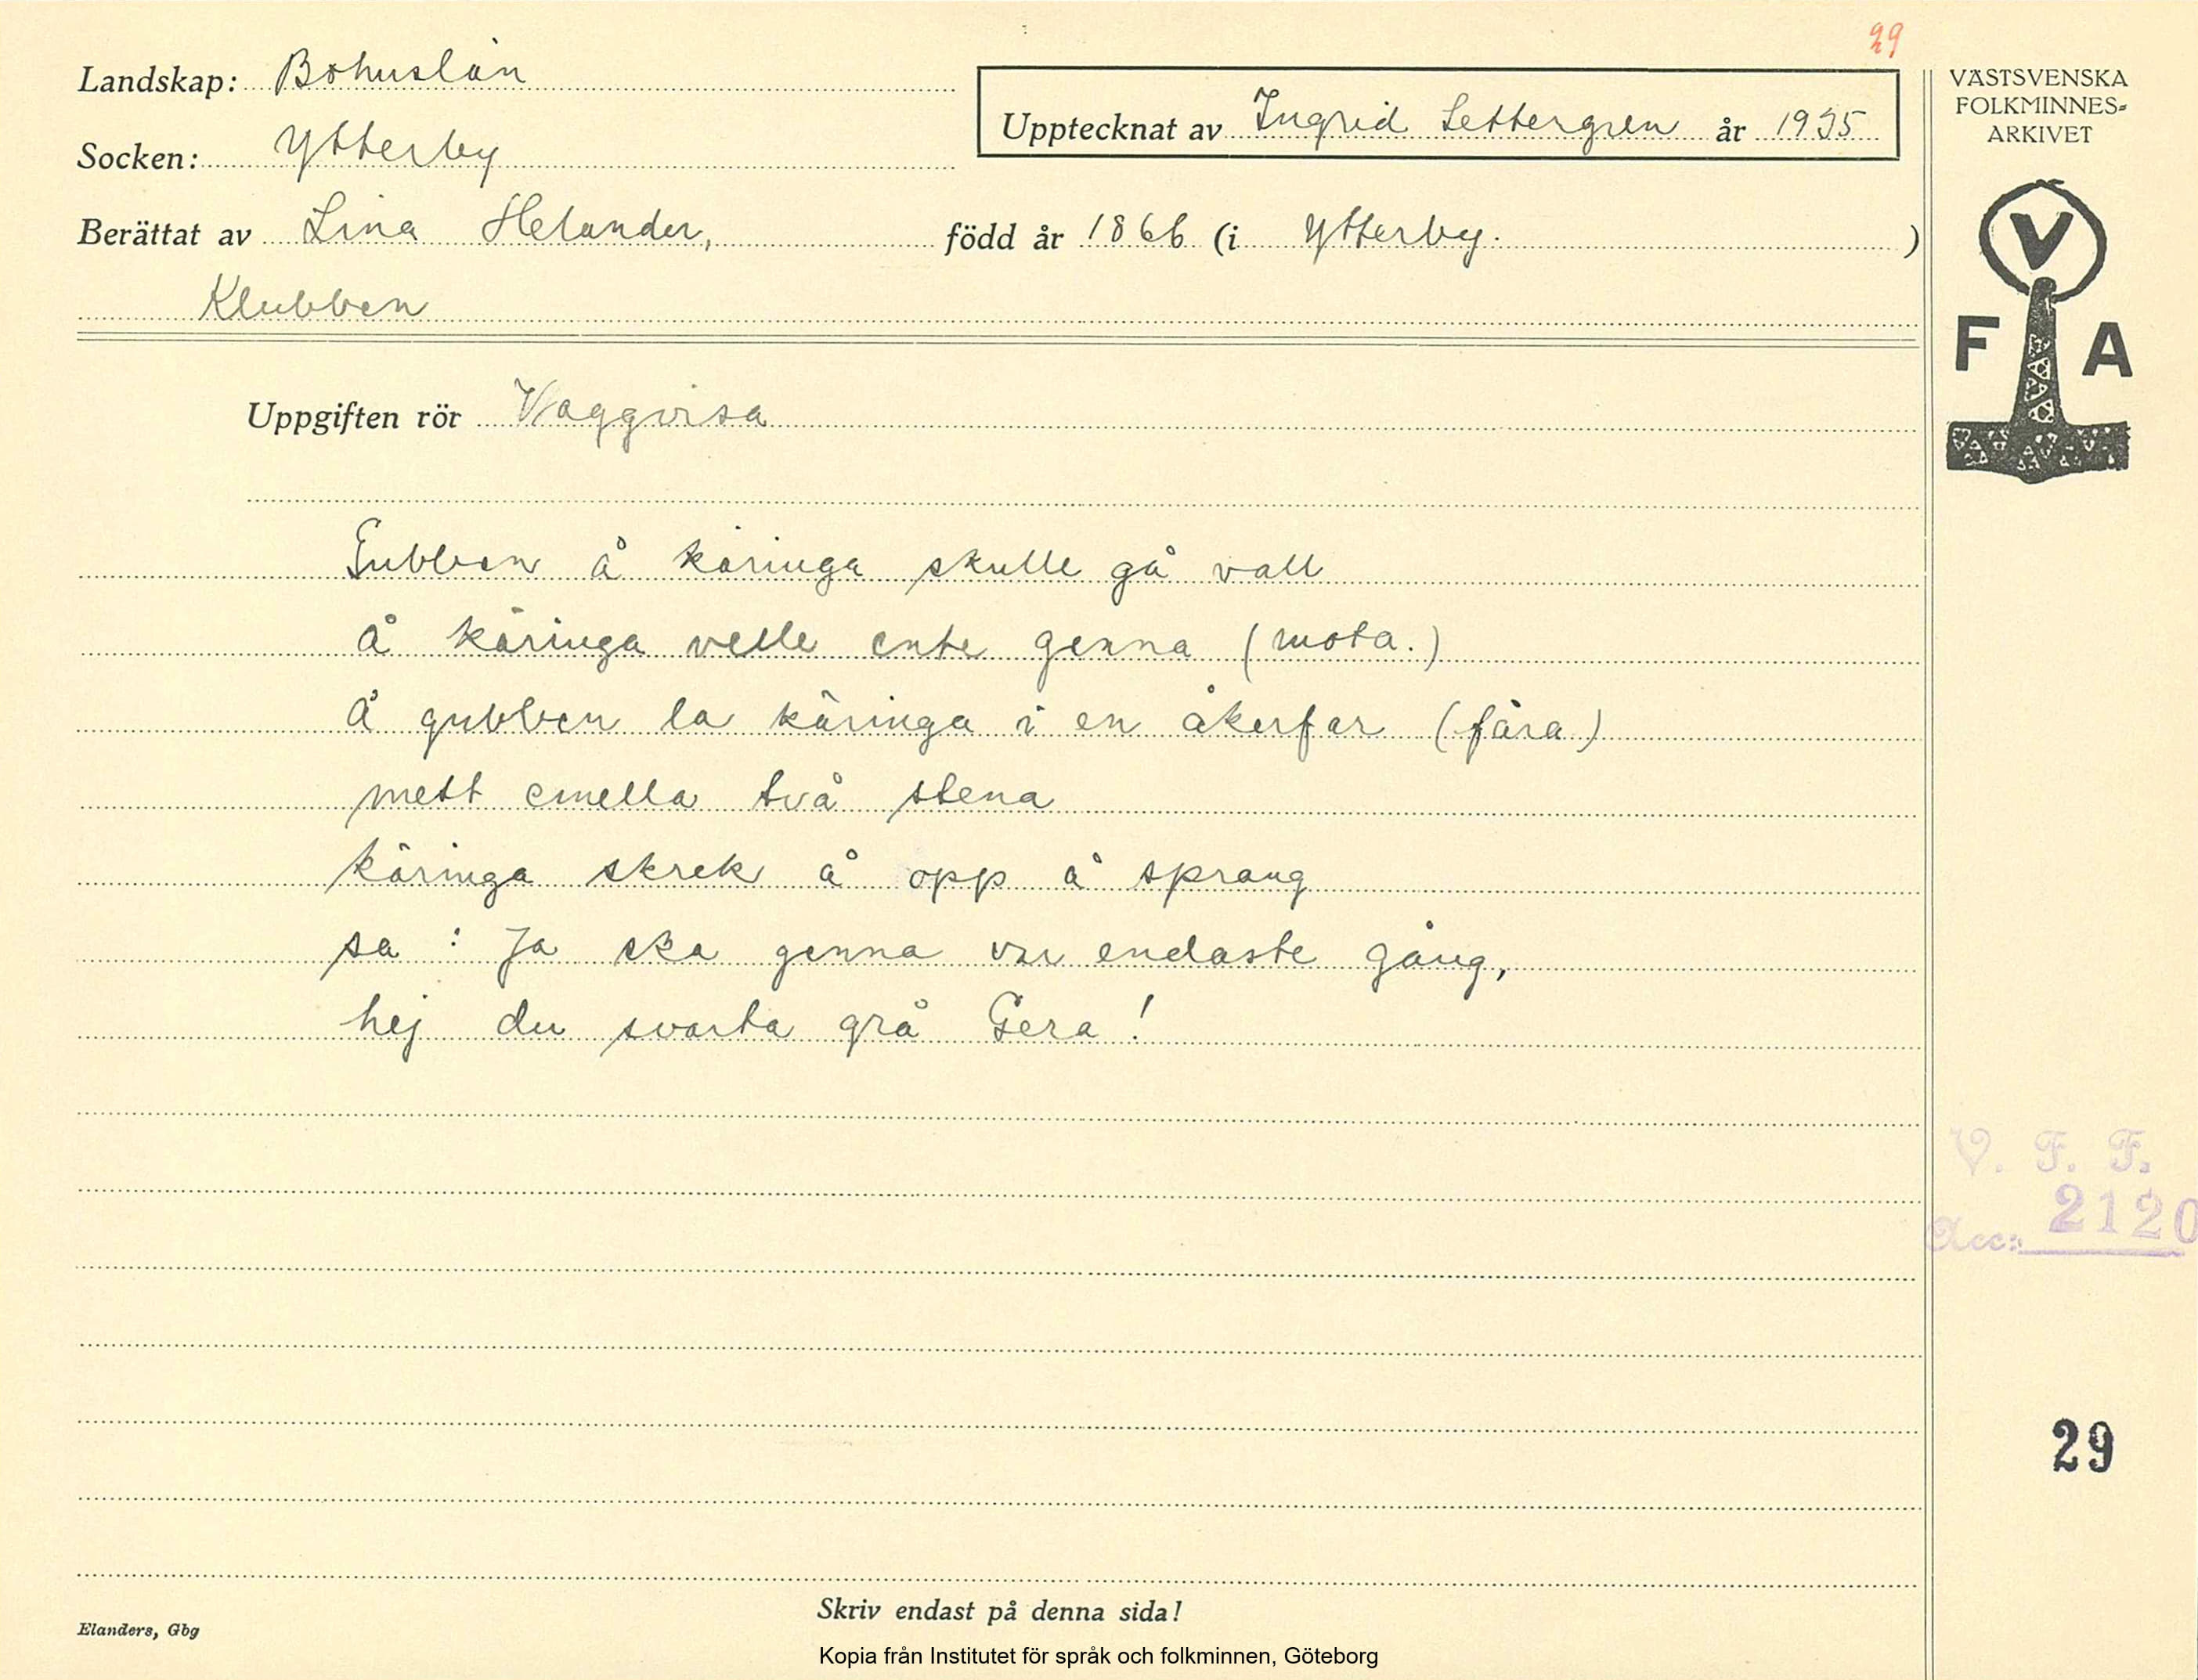 29
Landskap: Bohuslän
Socken: Ytterby
Upptecknat av Ingrid Settergren år 1935
Berättat av Lina Helander, född år 1866 (i Ytterby. )
Klubben
Uppgiften rör Vaggvisa
Gubben å käringa skulle gå vall
Å käringa velle ente genna (mota.)
Å gubben la käringa i en åkerfar (fåra)
mett emella två stena
käringa skrek å opp å sprang
sa : Ja ska genna var endaste gång,
hej du svarta grå Gera!
VÄSTSVENSKA
FOLKMINNES-
ARKIVET
V
F A
V. F. F.
Acc: 2120
29
Skriv endast på denna sida!
Elanders, Gbg
Kopia från Institutet för språk och folkminnen, Göteborg